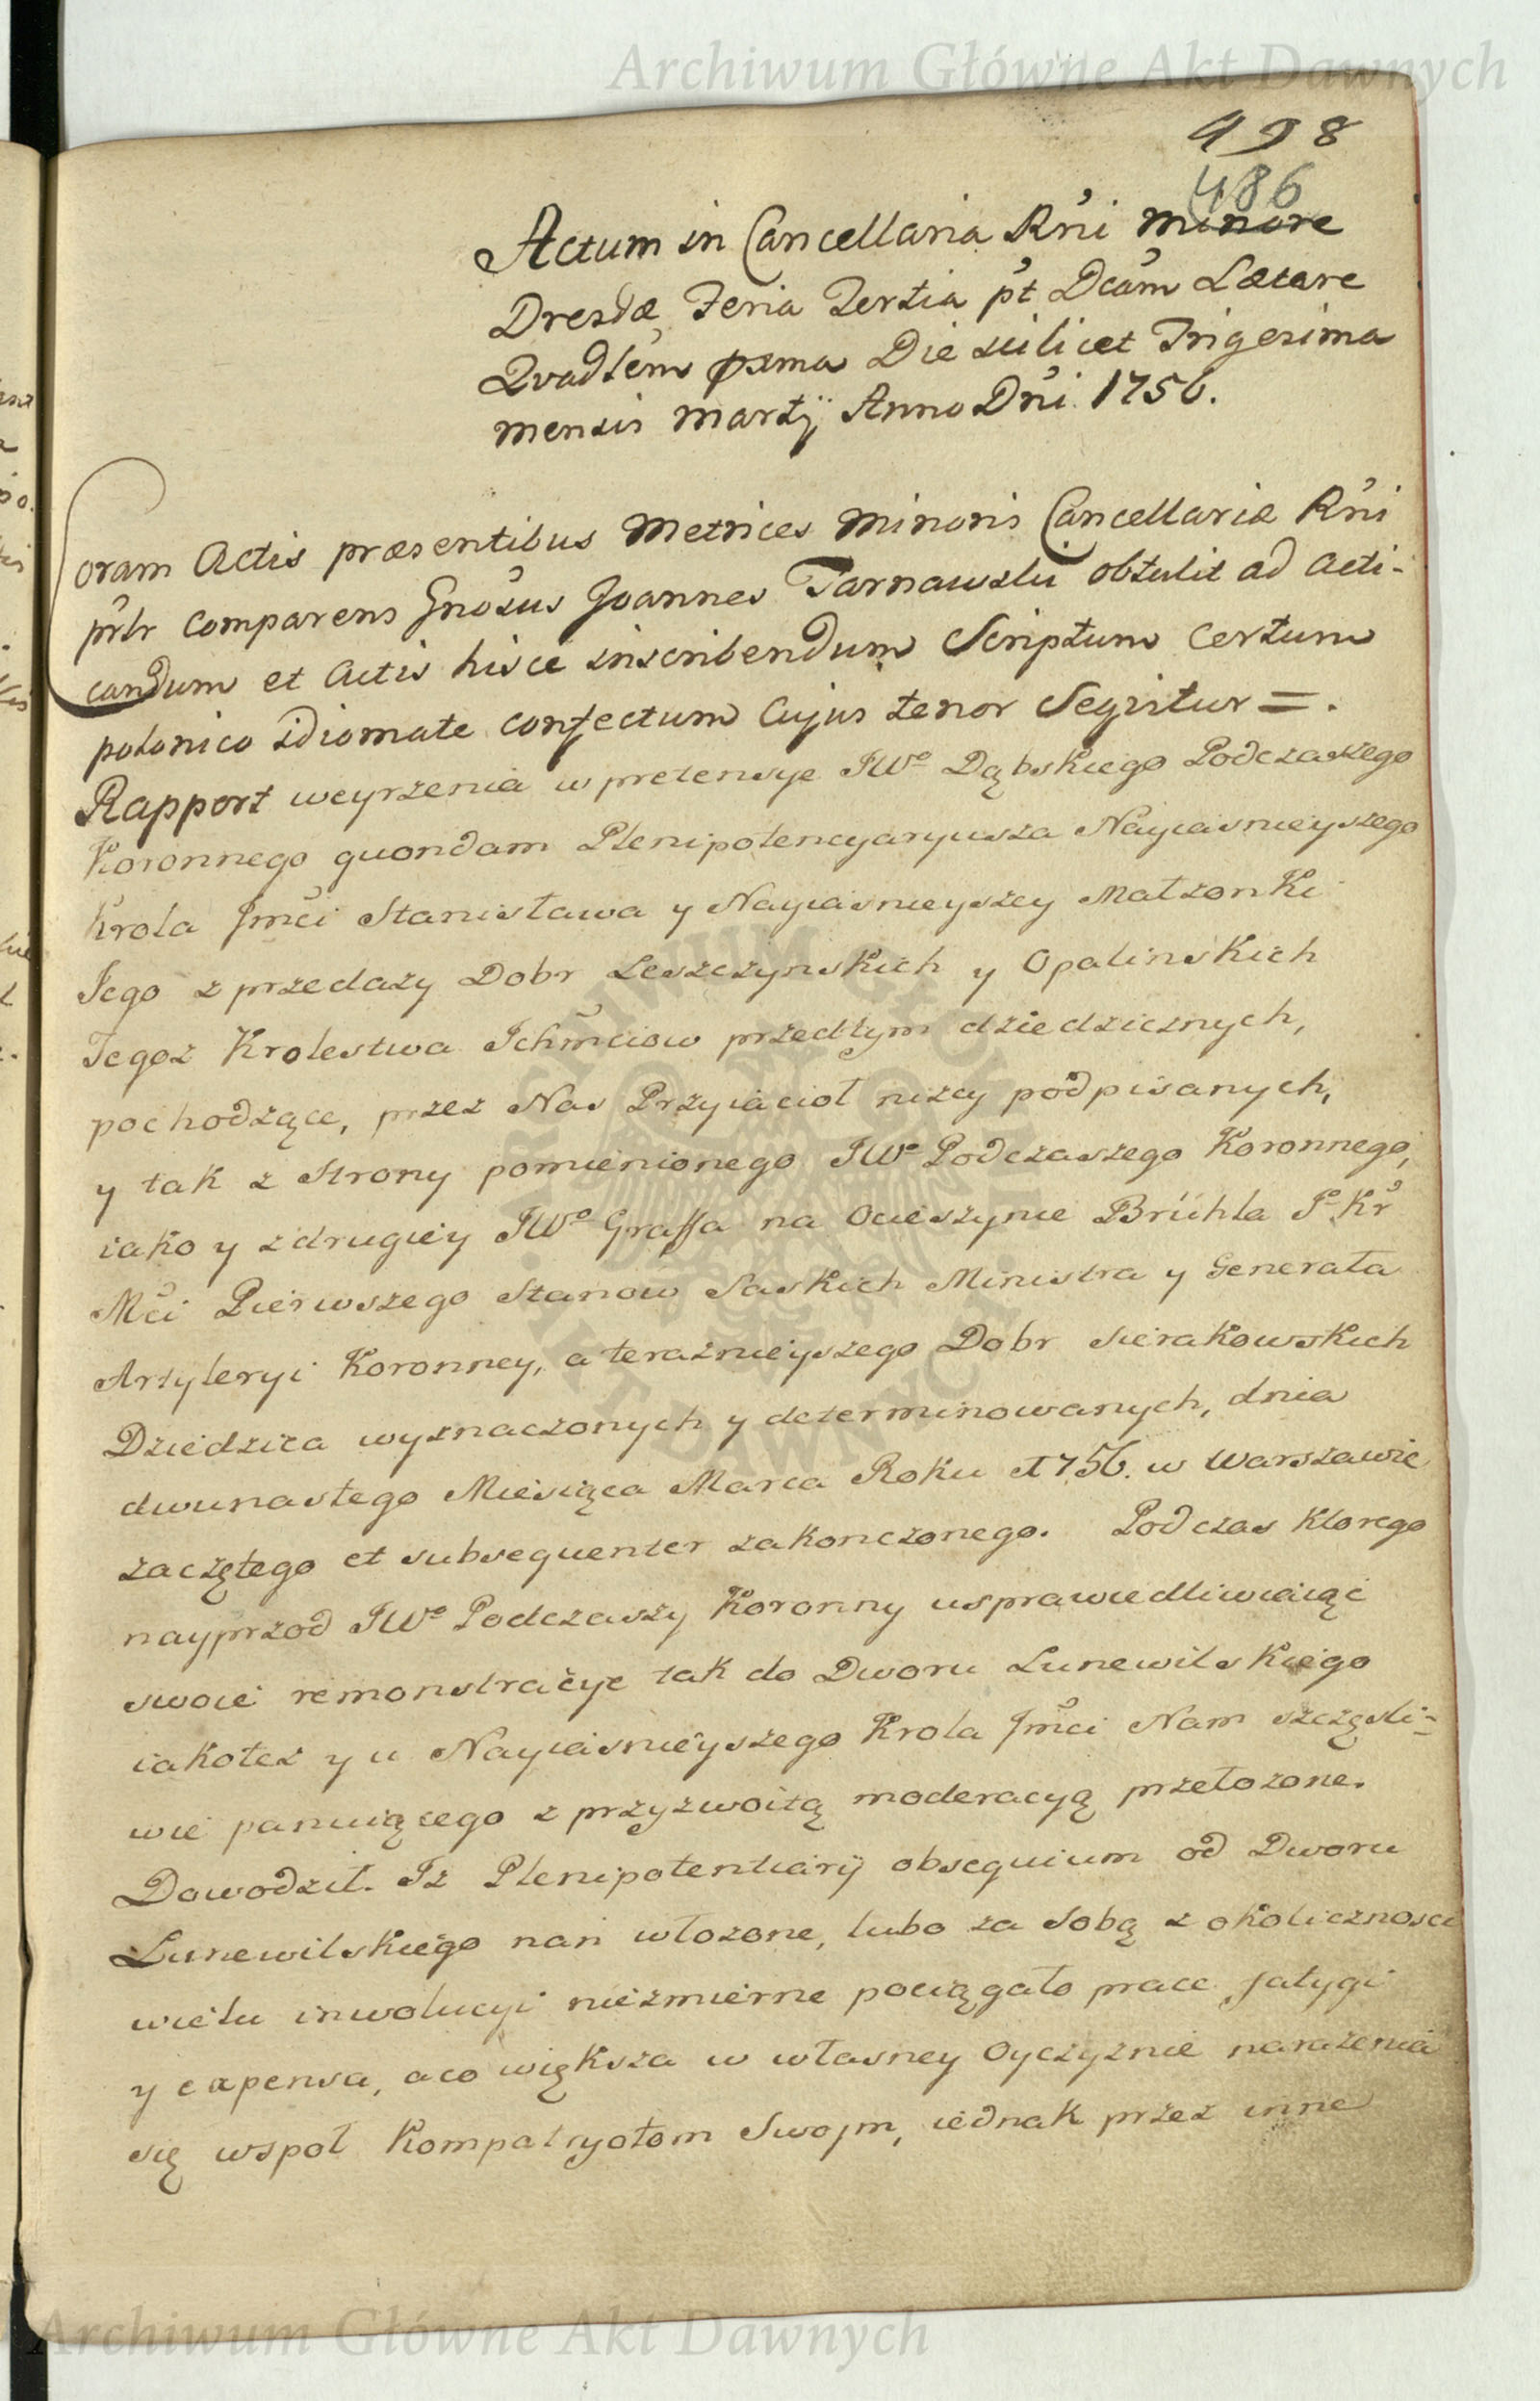 Archiwum Główne Akt Dawnych
498
486
Actum in Cancellaria Rńi minore
Dresdæ Feria Tertia pt Dcam Lætare
Qvadlem pxma Die scilicet Trigesima
mensis martÿ Anno Dńi 1756.
Coram Actis præsentibus Metrices Minoris Cancellariæ Rńi
prlr comparens Gnosus Joannes Tarnawski obtulit ad acti-
candum et Actis hisce inscribendum Scriptum certum
polonico idiomate confectum Cujus tenor Seqvitur =.
Rapport weyrzenia w pretensye JWo Dąbskiego Podczaszego
Koronnego quondam Plenipotencyaryusza Nayiasnieyszego
Krola Jmci Stanisława y Nayiasnieyszey Małzonki
Jego z przedazy Dobr Leszczynskich y Opalinskich
Tegoz Krolestwa Ichmciow przedtym dziedzicznych,
pochodzące, przez Nas Przyiacioł nizey podpisanych,
y tak z Strony pomienionego JWo Podczaszego Koronnego,
iako y z drugiey JWo Graffa na Ocieszynie Brühla Jo Kr
Mci Pierwszego Stanow Saskich Ministra y Generała
Artyleryi Koronney, a teraznieyszego Dobr Sierakowskich
Dziedzica wyznaczonych y determinowanych, dnia
dwunastego Miesiąca Marca Roku 1756. w Warszawie
zaczętego et subsequenter zakonczonego. Podczas ktorego
nayprzod JWo Podczaszy Koronny usprawiedliwiaiąc
swoie remonstracye tak do Dworu Lunewilskiego
iakotez y u Nayiasnieyszego Krola Jmci Nam szczęsli=
wie panuiącego z przyzwoitą moderacyą przełozone.
Dowodził. Iz Plenipotentiarÿ obsequium od Dworu
Lunewilskiego nan włozone, lubo za Sobą z okolicznosci
wielu inwolucyi niezmierne pociągało prace, fatygi
y expensa, a co większa w własney Oyczyznie narazenia
się wspoł Kompatryotom Swojm, iednak przez inne
Archiwum Główne Akt Dawnych